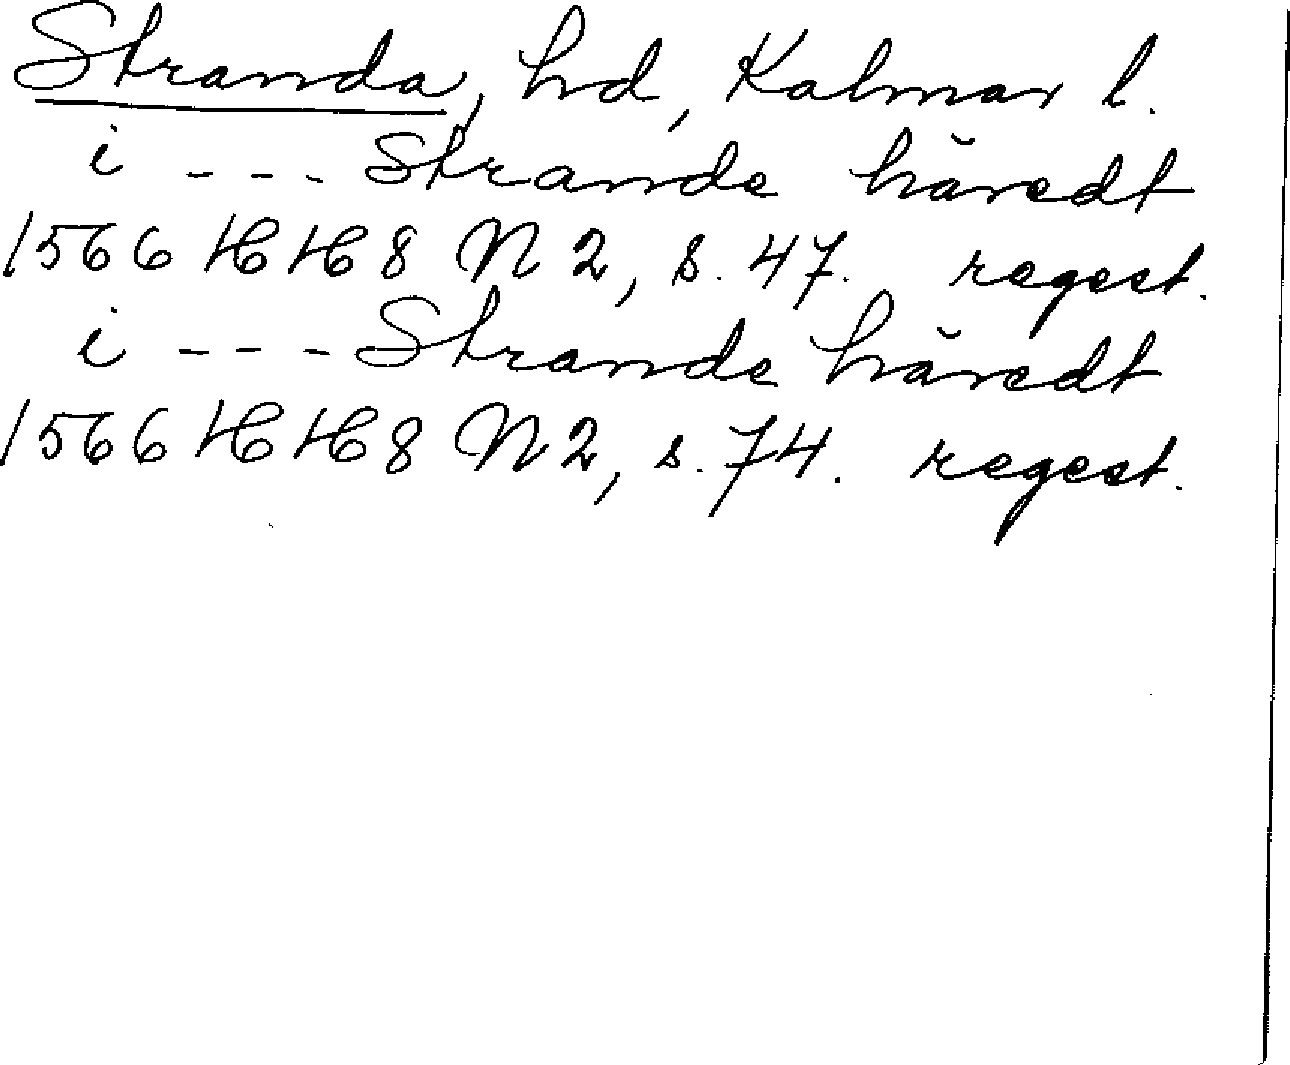 Stranda, hd, Kalmar l.
i --- Strande häredt
1566 HH 8 N 2, s. 47. regest.
i --- Strande häredt
1566 HH 8 N 2, s. 74. regest.